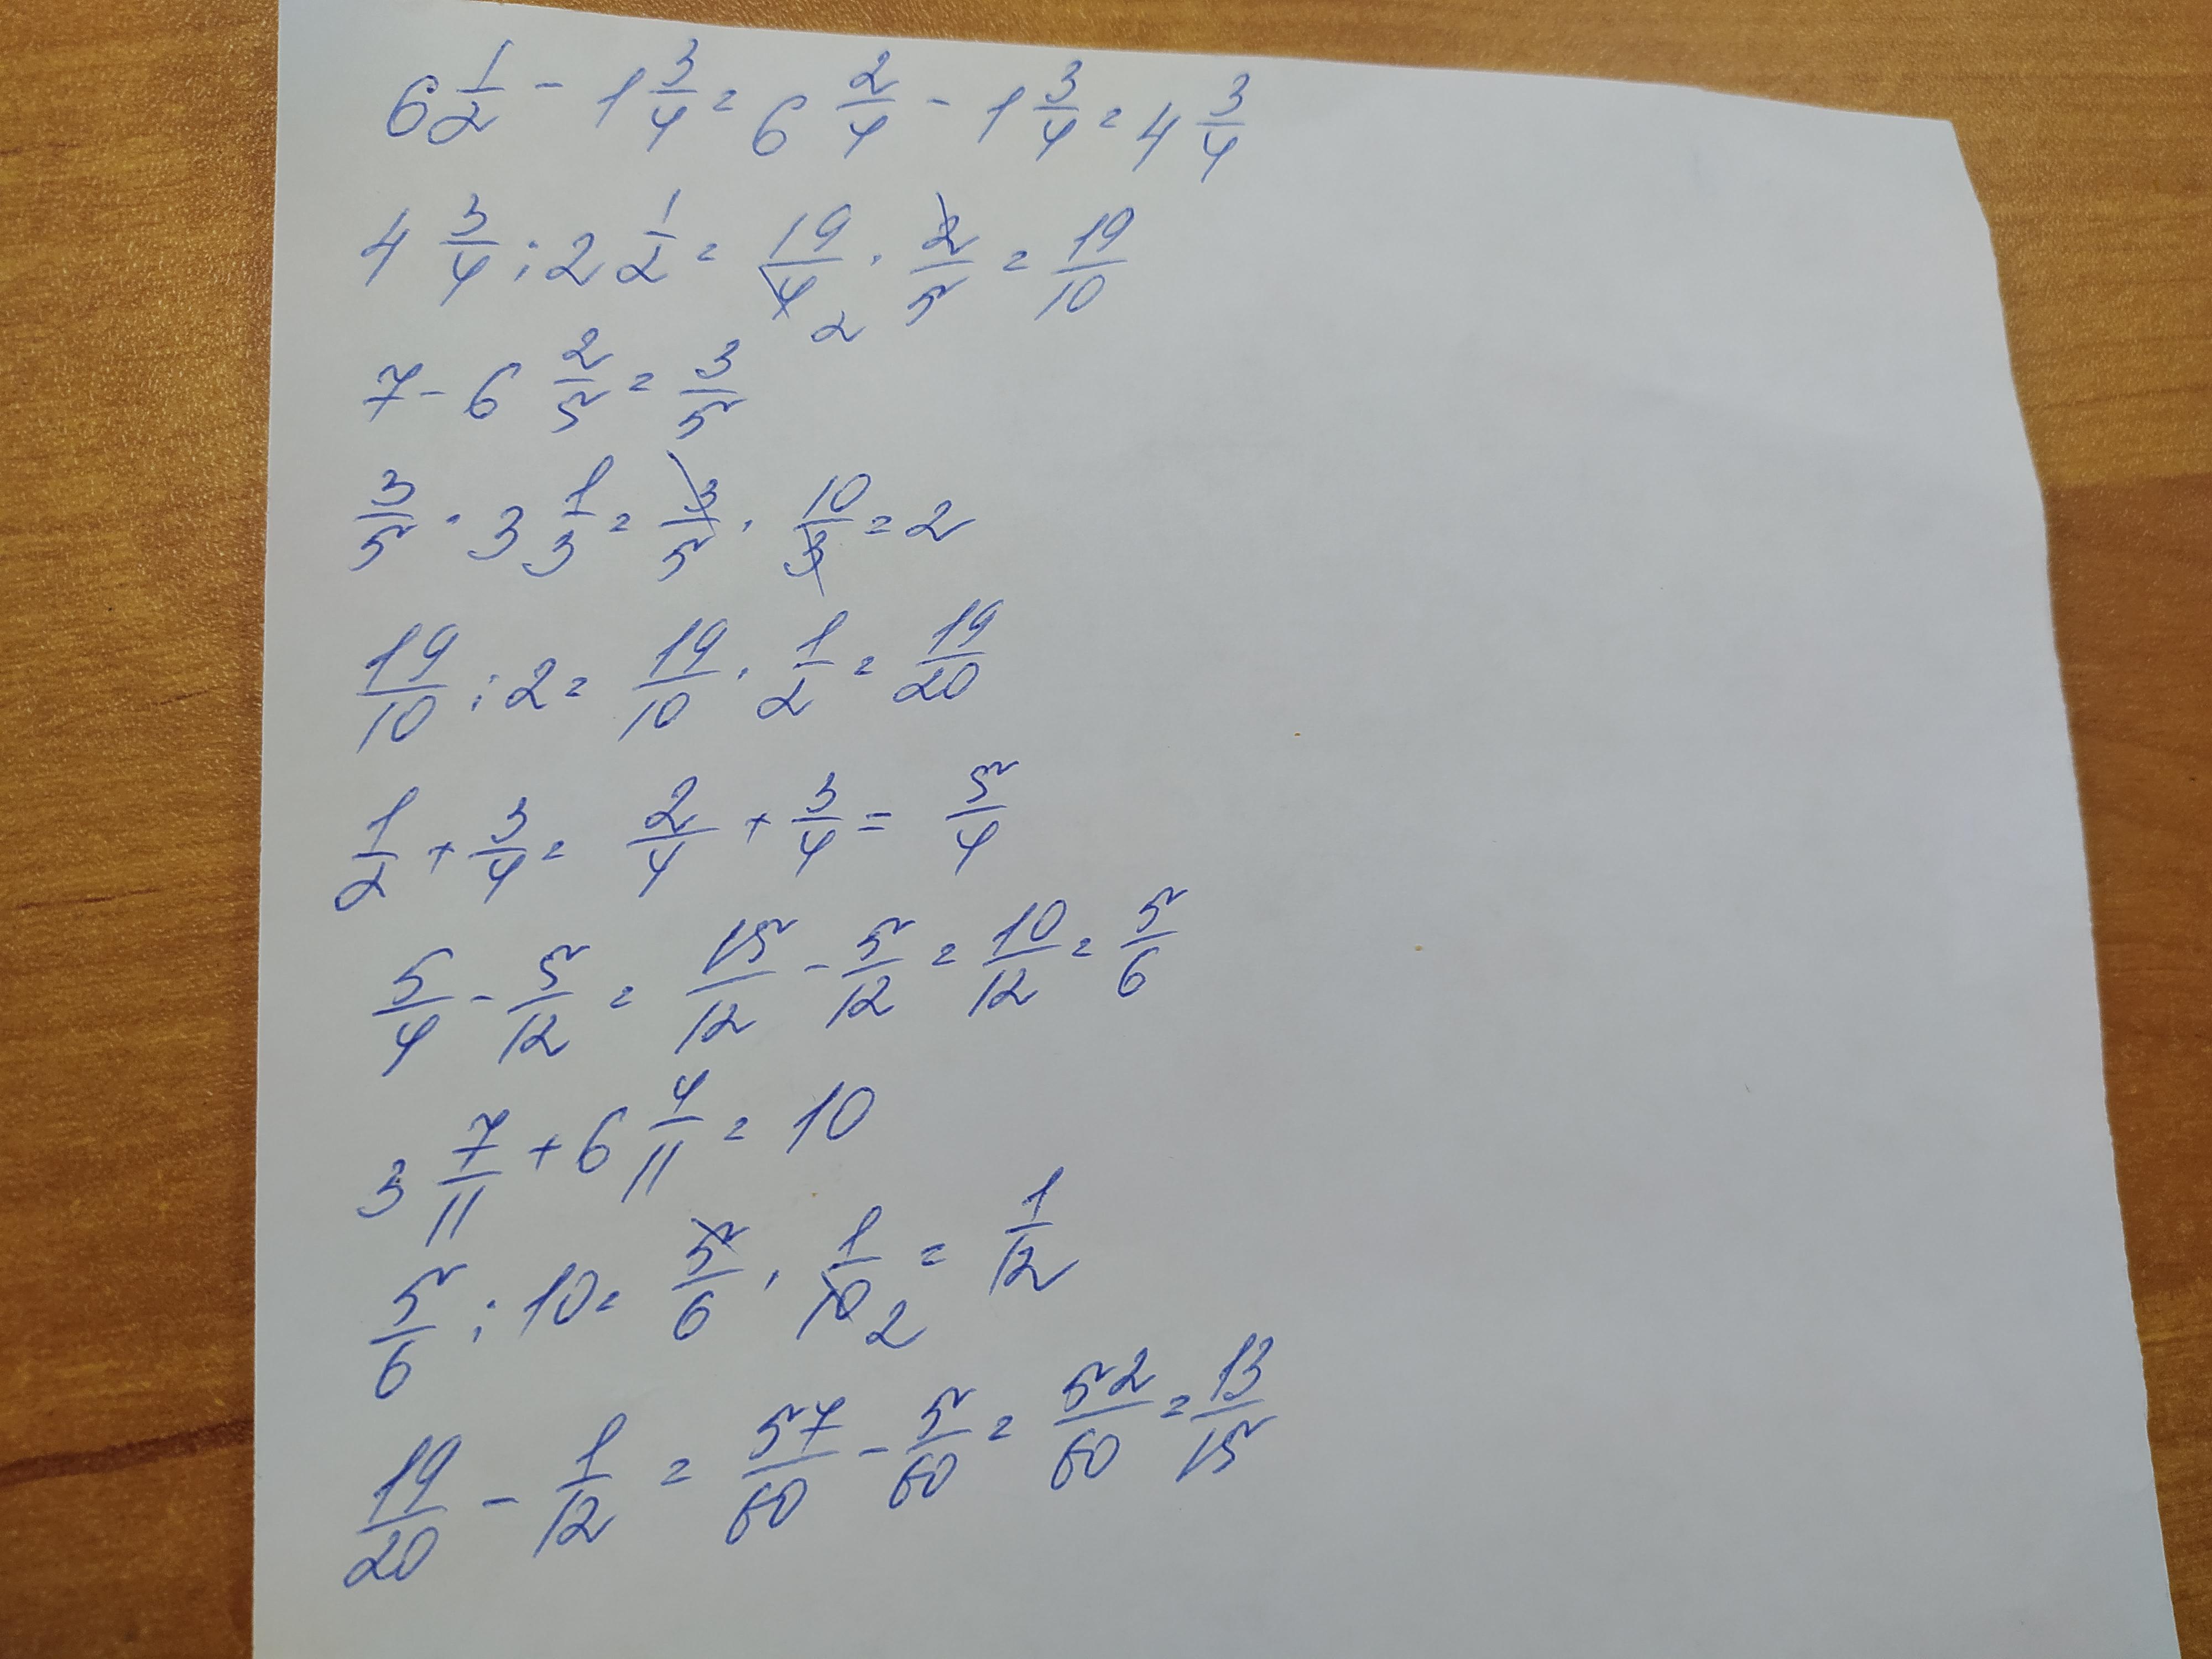 6 1/2 - 1 3/4 = 6 2/4 - 1 3/4 = 4 3/4
4 3/4 : 2 1/2 = 19/4 2 · 2/5 = 19/10
7 - 6 2/5 = 3/5
3/5 · 3 1/3 = 3/5 · 10/3 = 2
19/10 : 2 = 19/10 · 1/2 = 19/20
1/2 + 3/4 = 2/4 + 3/4 = 5/4
5/4 - 5/12 = 15/12 - 5/12 = 10/12 = 5/6
3 7/11 + 6 4/11 = 10
5/6 : 10 = 5/6 · 1/10 2 = 1/12
19/20 - 1/12 = 57/60 - 5/60 = 52/60 = 13/15